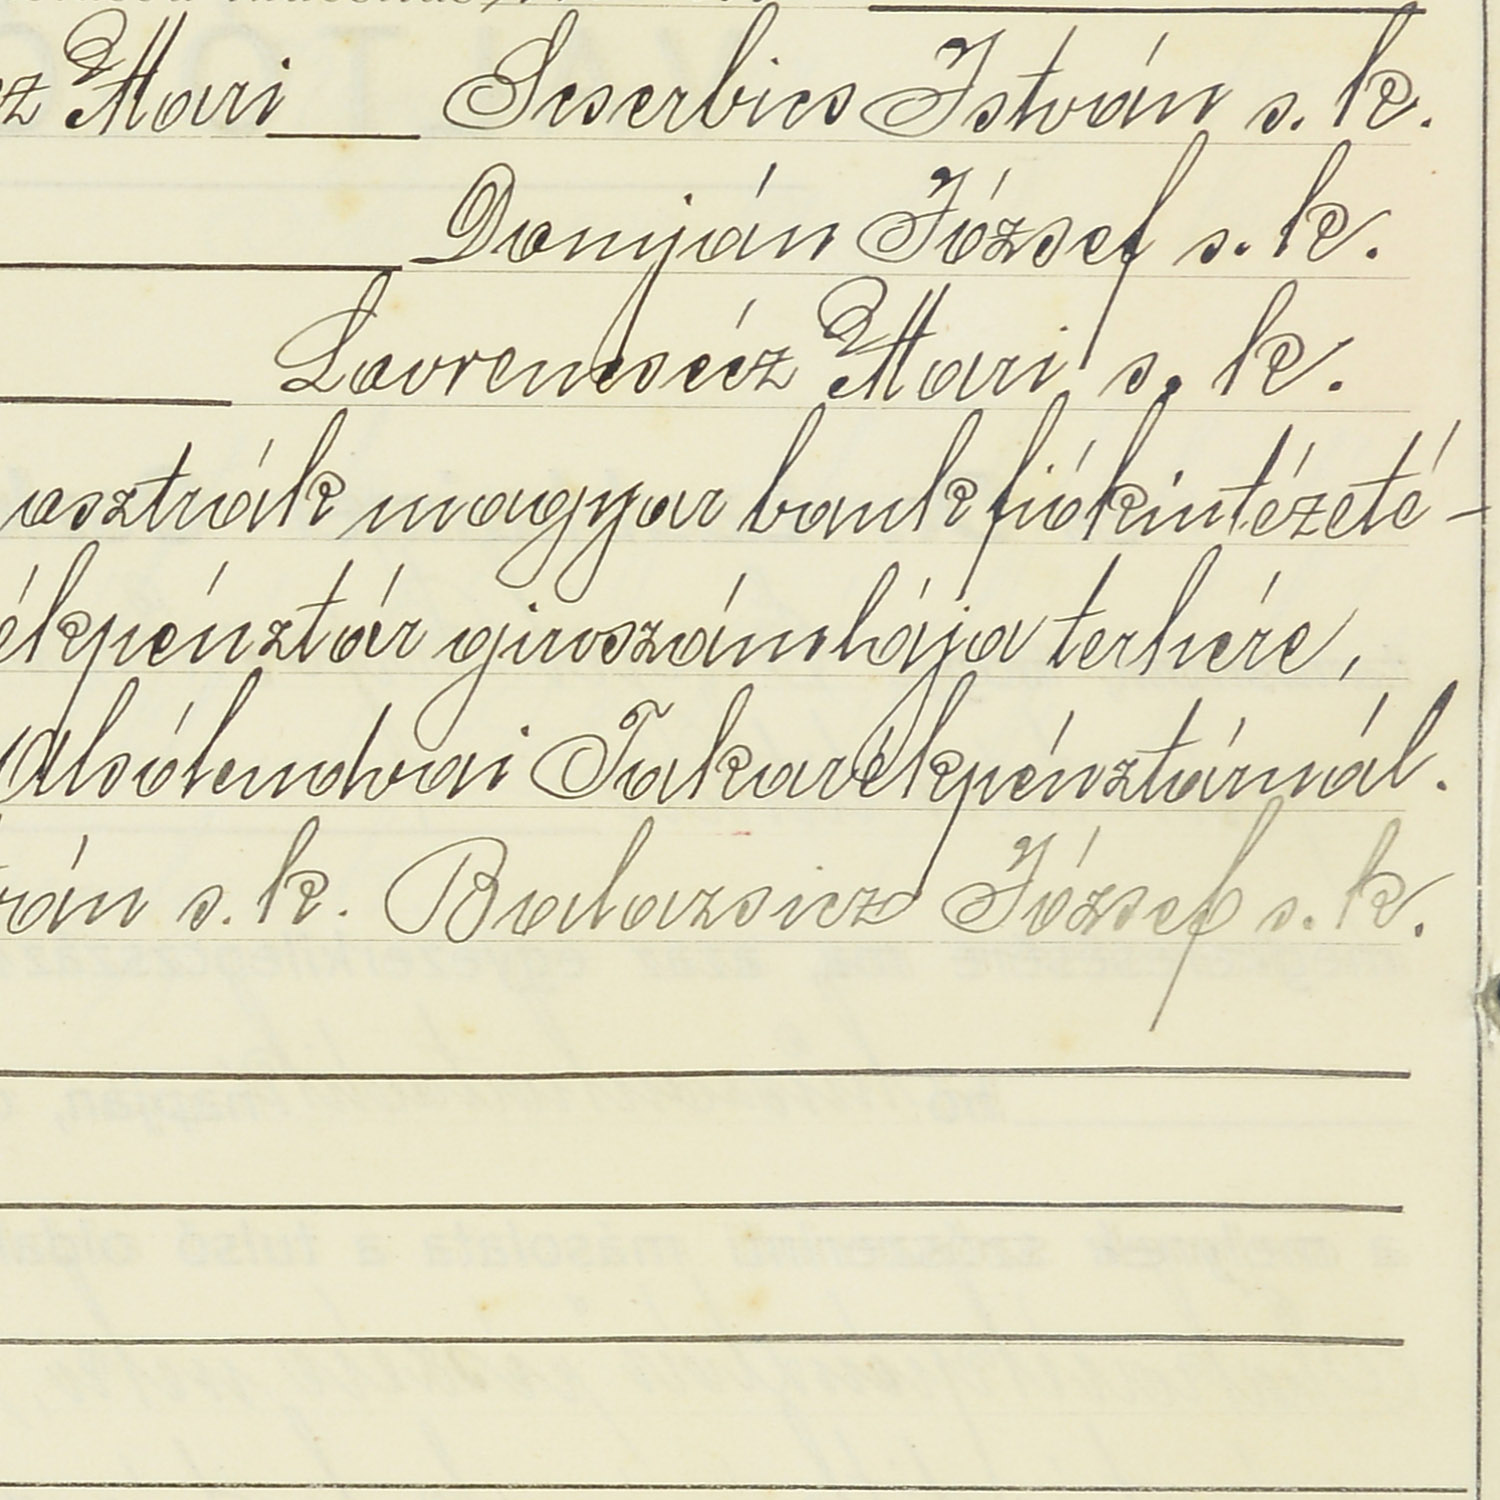 Mari Scserbics István s. k.
Domján József s. k.
Lovrencsécz Mari s. k.
osztrák magyar bank fiókintézeté-
ékpénztár giroszámlája terhére,
Alsólendvai Takarékpénztárnál.
s. k. Balazsicz József s. k.